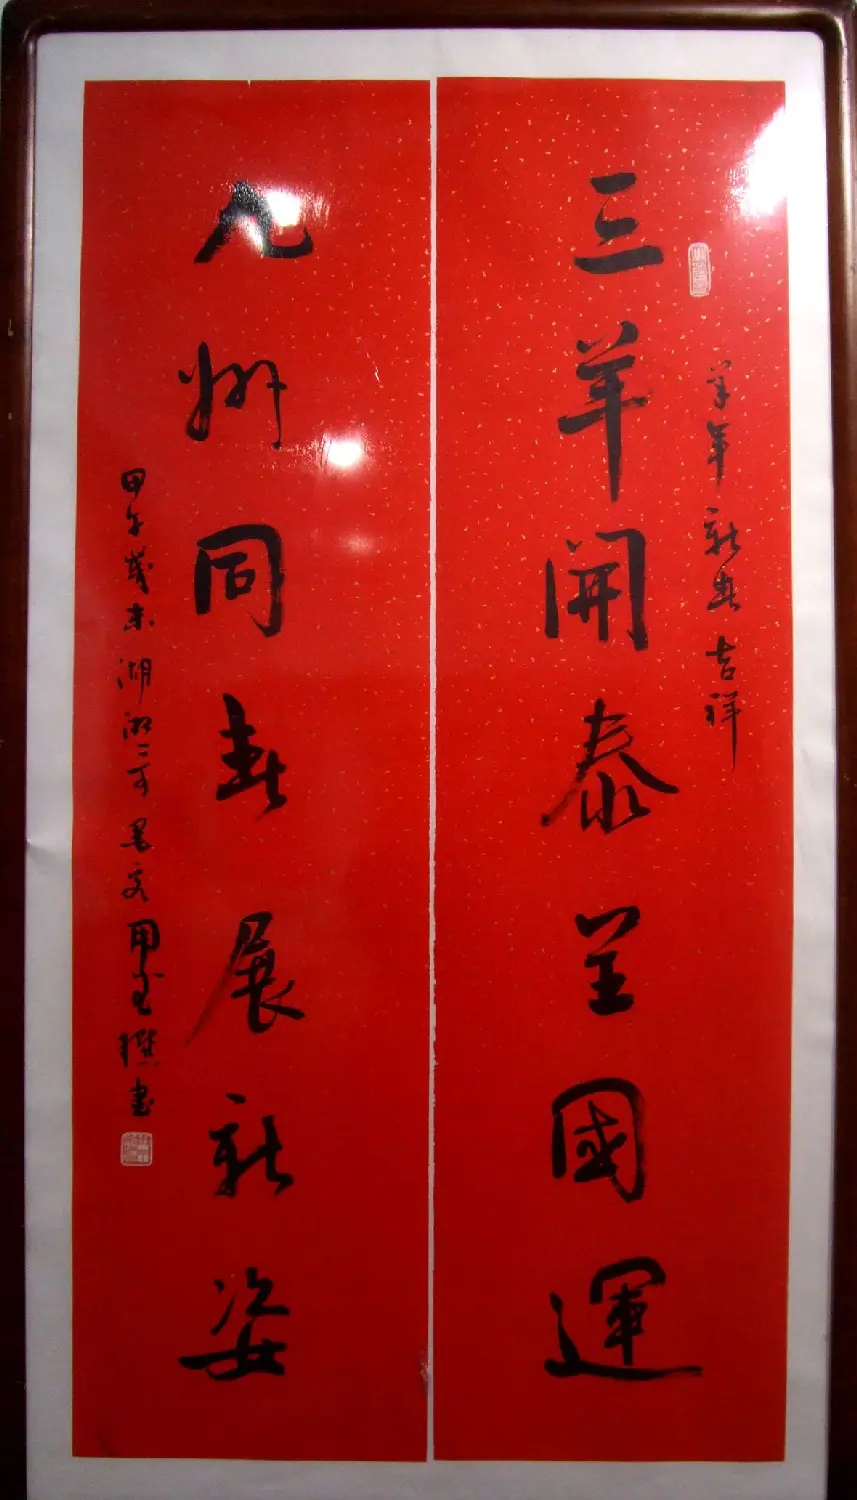 羊年新春吉祥
三羊開泰呈國運
九州同春展新姿
甲午歲末湖湘二可墨客用撰書